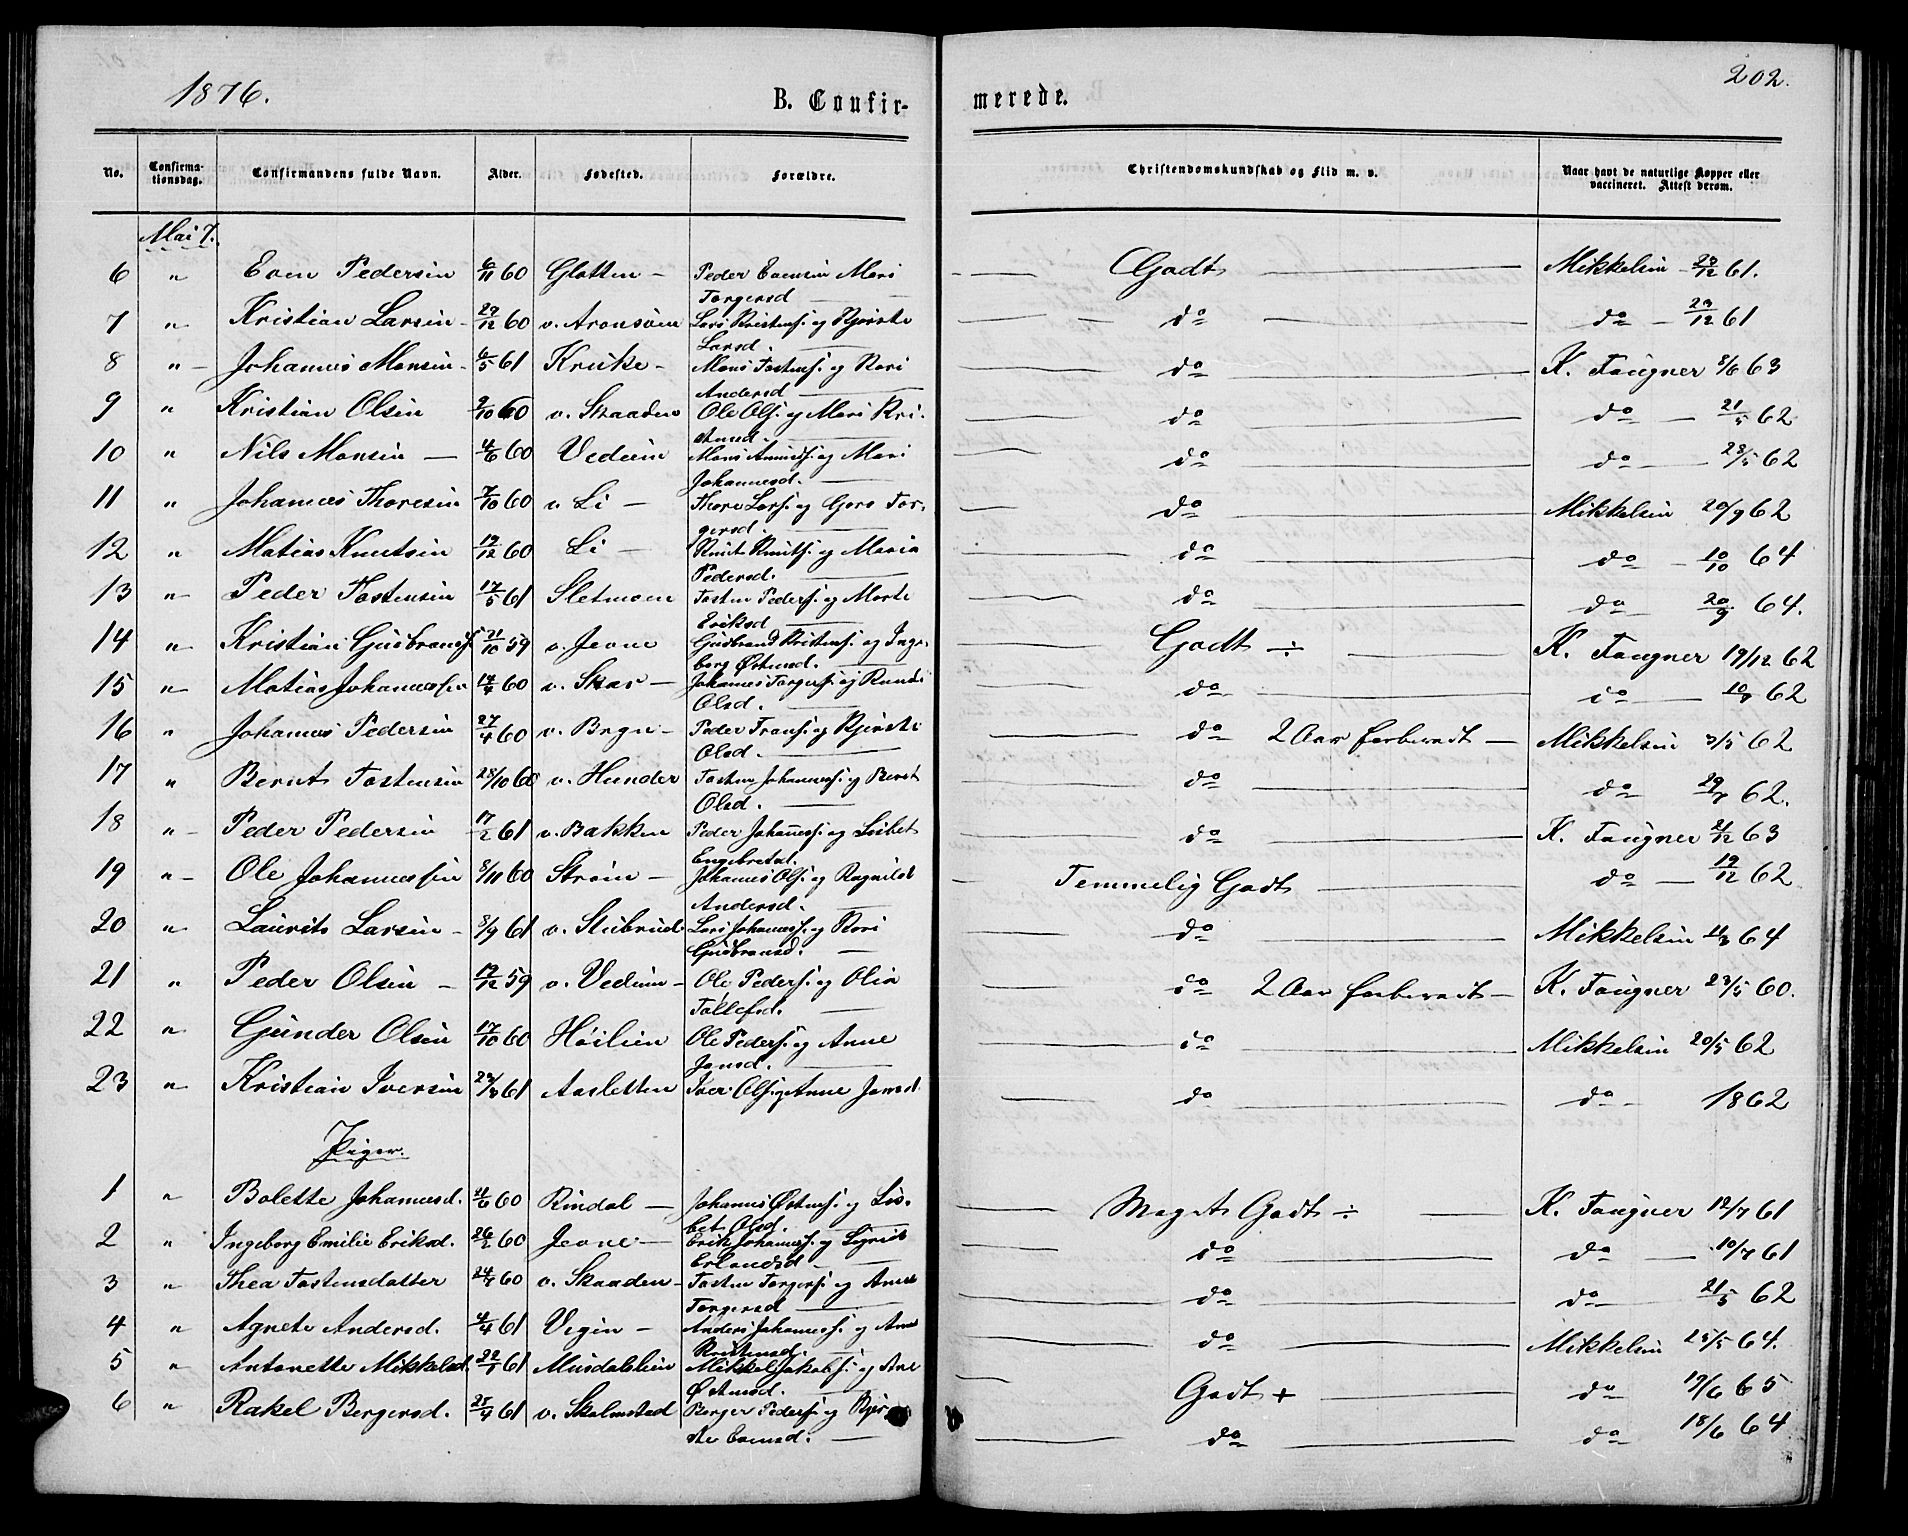 1876.
B. Confir-
merede.
202.
No.
Confirma-
tionsdag.
Confirmandens fulde Navn.
Alder.
Fødested.
Forældre.
Christendomskundskab og Flid m. v.
Naar havt de naturlige Kopper eller
vaccineret. Attest derom.
Mai 7.
6 " Even Pedersen 6/11 60 Glatten - Peder Evensen Mari Godt Mikkelsen 23/12 61.
Torgersd
7 " Kristian Larsen 29/12 60 v. Aronsveen Lars Kristens. og Kjersti do do - 23/12 61
Larsd.
8 " Johannes Monsen 6/5 61 Kruke - Mons Tostens. og Kari do K. Faugner 8/6 63
Andersd
9 " Kristian Olsen 2/10 60 v. Skaaden Ole Ols. og Mari Kri- do do - 21/5 62
stensd.
10 " Nils Monsen 4/6 60 Vedum Mons Amunds. og Mari do do 23/5 62
Johannesd.
11 " Johannes Thoresen 7/10 60 v. Li - Thore Lars. og Goro Tor- do Mikkelsen 20/9 62
gersd.
12 " Matias Knutsen 19/12 60 Li - Knut Knuts. og Maria do do - 10/10 64
Pedersd.
13 " Peder Tostensen 17/5 61 Sletmoen Tosten Peders. og Marte do do 20/9 64.
Eriksd
14 " Kristian Gudbrands. 21/10 59 v. Jevne Gudbrand Kristens. og Inge- Godt ÷ K. Faugner 19/12 62
borg Østensd.
15 " Matias Johannessen 60 v. Skar - Johannes Torgers. og Randi do do 62
Olsd.
16 " Johannes Pedersen 27/4 60 v. Bryn - Peder Frans. og Kjersti do 2 Aar forberedt - Mikkelsen 3/5 62
Olsd.
17 " Bernt Tostensen 28/10 60 v. Hunder Tosten Johanness. og Berit do do 62.
Olsd.
18 " Peder Pedersen 17/2 61 v. Bakken Peder Johanness. og Lisbet do K. Faugner 21/12 63
Engebretsd.
19 " Ole Johannessen 8/11 60 Strøm - Johannes Ols. og Ragnild Temmelig Godt do - 19/12 62
Andersd.
20 " Laurits Larsen 8/9 61 v. Stubrud Lars Johanness. og Kari do Mikkelsen 64
Gudbransd.
21 " Peder Olsen - 19/12 59 v. Vedum - Ole Peders. og Olia do 2 Aar forberedt - K. Faugner 23/5 60.
Tollefsd.
22 " Gunder Olsen 17/10 60 Høilien Ole Peders. og Anne do Mikkelsen 20/5 62
Jonsd.
23 " Kristian Iversen 61 Aasletten Iver Ols. og Anne Jonsd. do do 1862
Piger.
1 " Bolette Johannesd. 21/6 60 Rindal - Johannes Østens. og Lis- Meget Godt ÷ K. Faugner 12/7 61
bet Olsd.
2 " Ingeborg Emilie Eriksd. 26/2 60 Jevne - Erik Johanness. og Sigrid do do - 10/7 61
Erlandsd
3 " Thea Tostensdatter 60 v. Skaaden - Tosten Torgers. og Anne do do 21/5 62
Torgersd
4 " Agnete Andersd. 4/4 61 Vigen - Anders Johanness. og Anne do Mikkelsen 25/5 64.
Kristensd.
5 " Antonette Mikkelsd. 61 Musdalslien Mikkel Jakobs. og Ane Godt + do 19/6 65
Østensd.
6 " Rakel Bergersd. 25/4 61 v. Skalmstad Berger Peders. og Kjer- do do 18/6 64
sti Evensd.